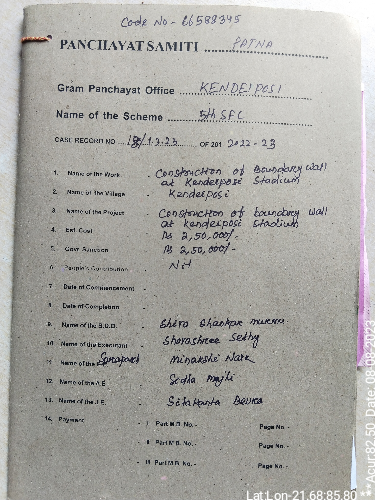 Code No - 66588345
PANCHAYAT SAMITI PATNA
Gram Panchayat Office KENDEIPOSI
Name of the Scheme 5th SFC
CASE RECORD NO /1-2-23 OF 201 2022-23
1. Name of the Work - Construction of Boundary Wall
at Kendeiposi Stadium
2. Name of the Village - Kendeiposi
3. Name of the Project - Construction of boundary wall
at kendeiposi stadium
4. Est. Cost - Rs 2,50,000/-
5. Govt. Sanction - Rs 2,50,000/-
6. People's Contribution - Nil
7. Date of Commencement -
8. Date of Completion -
9. Name of the B.D.O. - Shiva Shankar
10. Name of the Executant - Sethy
11. Name of the Sarapanch Minakshi Naik
12. Name of the A.E. - Majhi
13. Name of the J.E. - Sitakanta
14. Payment - I Part M.B. No.- Page No.-
- II Part M.B. No.- Page No.-
- III Part M.B. No.- Page No.-
Lat:Lon-21.68:85.80 **Acur:82.50 Date:08-08-2023